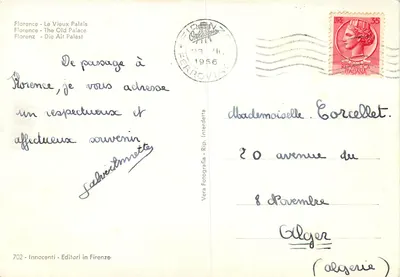 Florence - Le Vieux Palais
Florence - The Old Palace
Florenz - Die Alt Palast
De passage à
Florence, je vous adresse
un respectueux et
affectueux souvenir
702 - Innocenti - Editori in Firenze
Vera Fotografia - Rip. Interdetta
FIRENZE
1956
FERROVIA
Mademoiselle Torcellet
20 avenue du
8 Novembre
Alger
(Algérie)